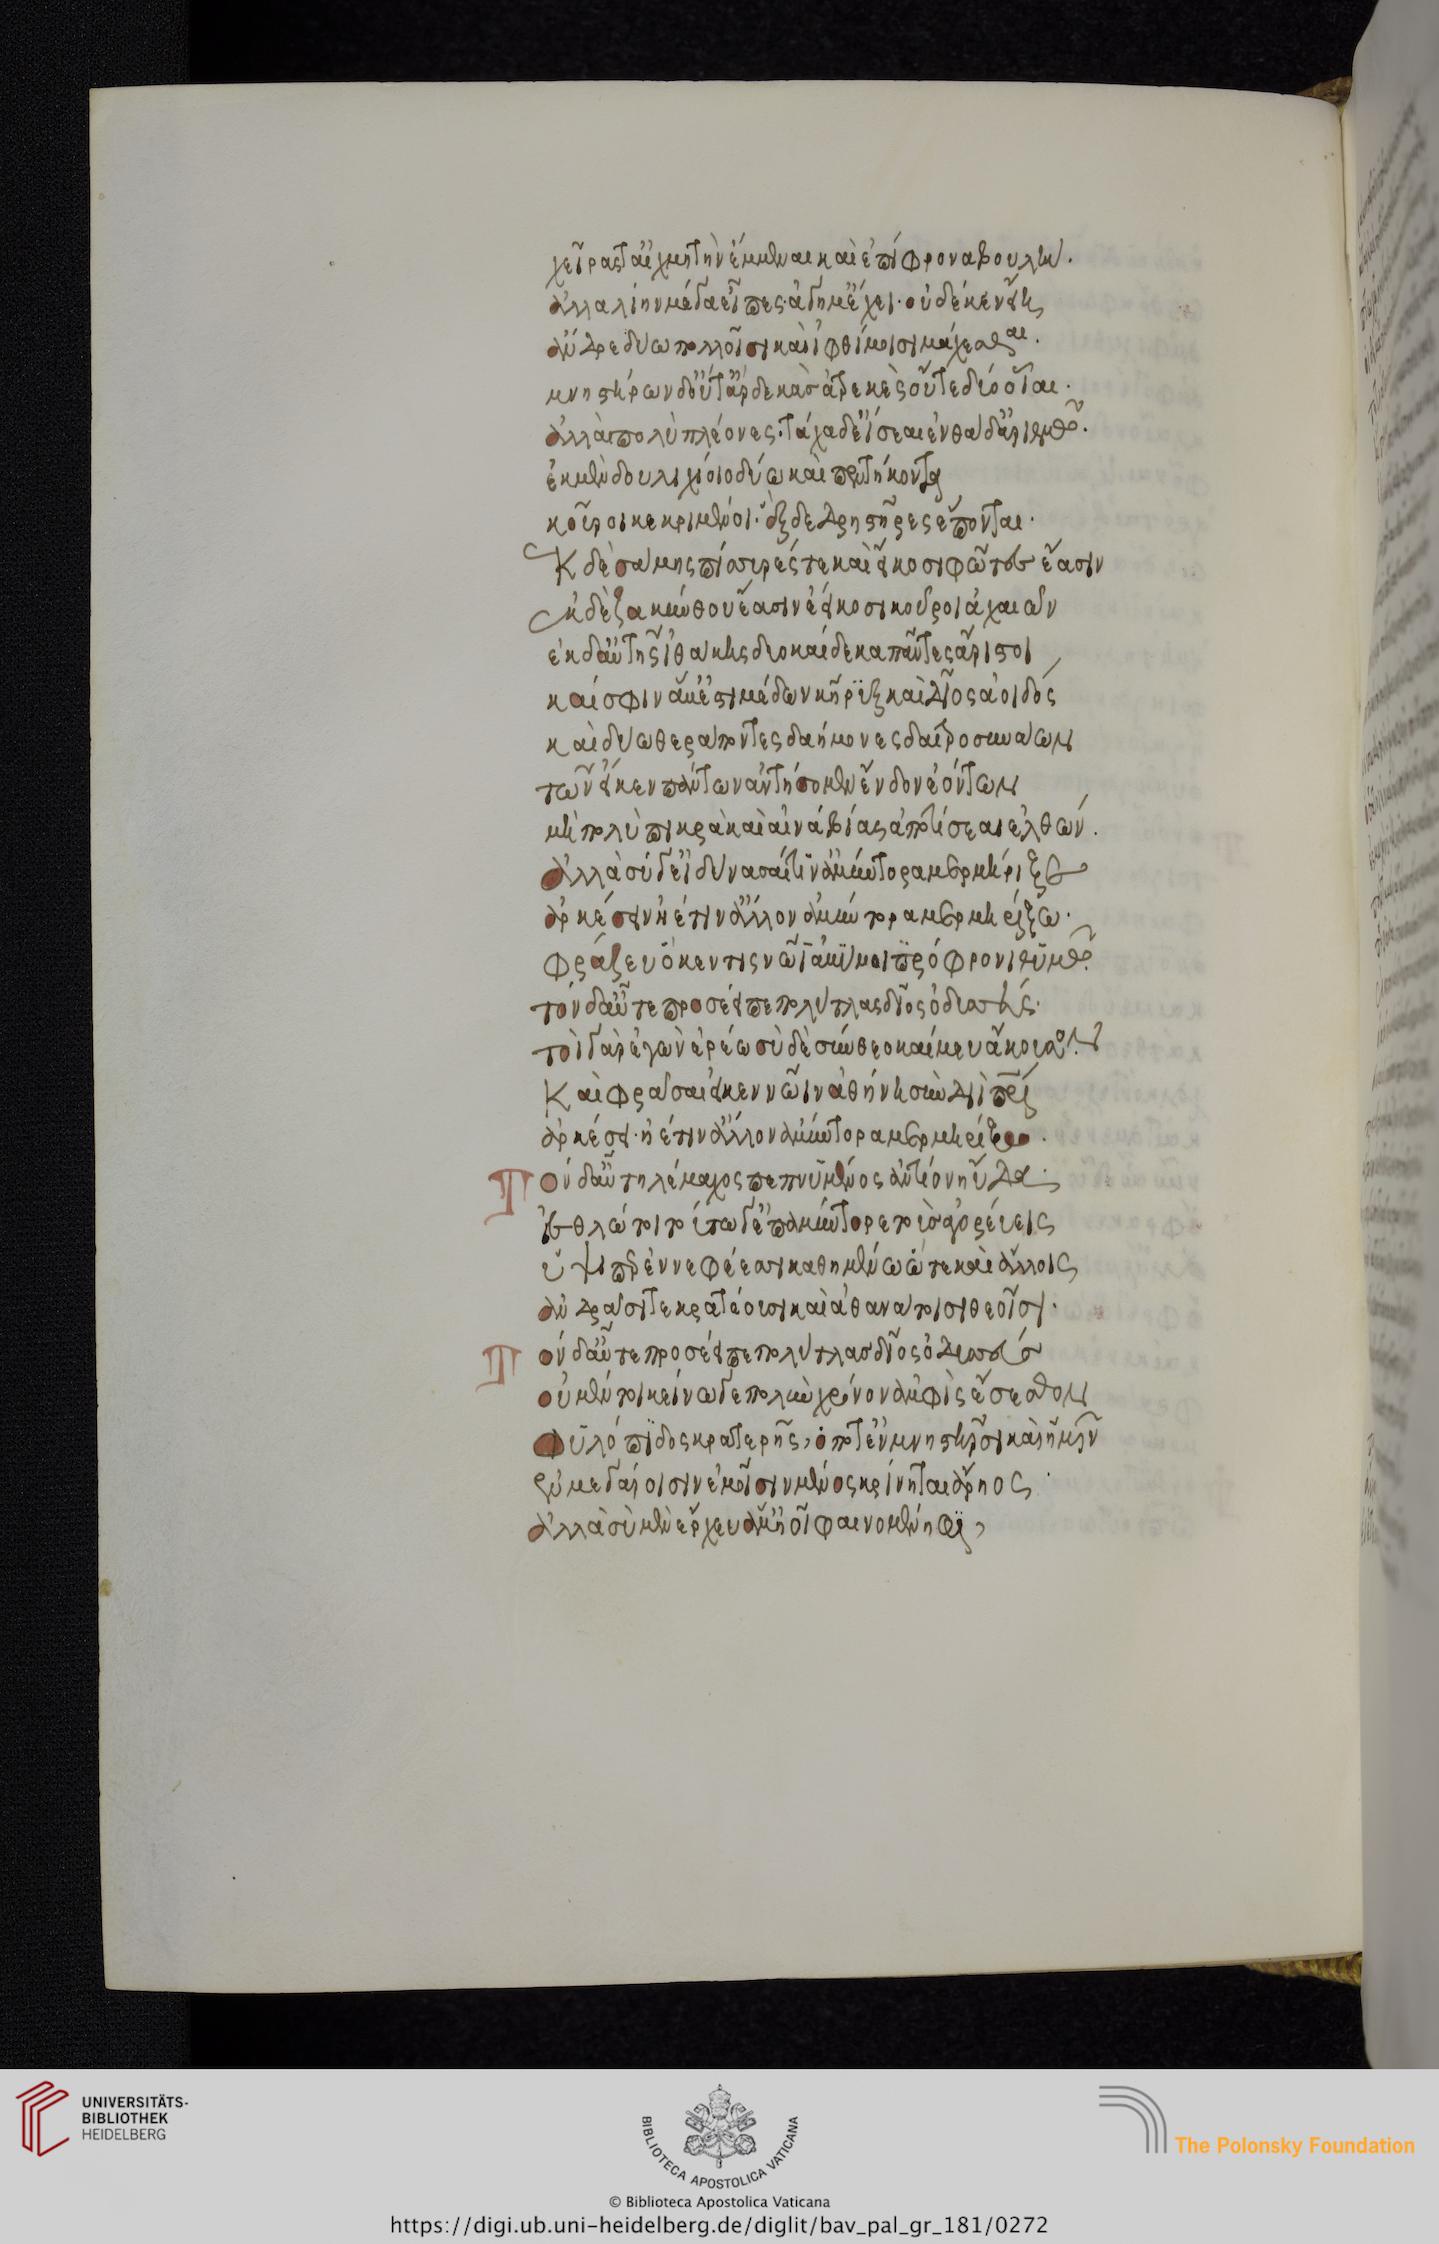 χεῖράς τ' αἰχμητὴν ἔμμεναι καὶ ἐπίφρονα βουλήν.
ἀλλὰ λίην μέγα εἶπες· ἄγη μ' ἔχει· οὐδέ κεν εἴη
ἄνδρε δύω πολλοῖσι καὶ ἰφθίμοισι μάχεσθαι.
μνηστήρων δ' οὔτ' ἂρ δεκὰς ἀτρεκὲς οὔτε δύ' οἶαι.
ἀλλὰ πολὺ πλέονες· τάχα δ' εἴσεαι ἐνθάδ' ἀριθμόν.
ἐκ μὲν δουλιχίοιο δύω καὶ πεντήκοντα
κοῦροι κεκριμένοι· ἓξ δὲ δρηστῆρες ἕπονται.
Ἐκ δὲ σάμης πίσυρές τε καὶ εἴκοσι φῶτες ἔασιν
ἐκ δὲ ζακύνθου ἔασιν ἐείκοσι κοῦροι ἀχαιῶν
ἐκ δ' αὐτῆς ἰθάκης δυοκαίδεκα πάντες ἄριστοι
καί σφιν ἅμ' ἐστὶ μέδων κῆρυξ καὶ δῖος ἀοιδός
καὶ δύω θεράποντες δαήμονες δαιτροσυνάων
τῶν εἴ κεν πάντων ἀντήσομεν ἔνδον ἐόντων
μὴ πολὺ πικρὰ καὶ αἰνὰ βίας ἀποτίσεαι ἐλθών.
ἀλλὰ σύ γ' εἰ δύνασαί τιν' ἀμύντορα μερμηρίξαι
ἀρκέσειν ἠέ τιν' ἄλλον ἀμύντορα μερμηρίξω.
φράζευ ὅ κεν τις νῶϊ ἀμύνοι πρόφρονι θυμῷ.
τὸν δ' αὖτε προσέειπε πολύτλας δῖος ὀδυσσεύς·
τοὶ γὰρ ἐγὼν ἐρέω σὺ δὲ σύνθεο καί μευ ἄκουσον·
Καὶ φράσαι εἴ κεν νῶϊν ἀθήνη σὺν διὶ πατρὶ
ἀρκέσει· ἠέ τιν' ἄλλον ἀμύντορα μερμηρίξω.
Τὸν δ' αὖ τηλέμαχος πεπνυμένος ἀντίον ηὔδα·
ἐσθλώ τοι τούτω γ' ἐπαμύντορε τοὺς ἀγορεύεις
ὕψι περ ἐν νεφέεσσι καθημένω ὥ τε καὶ ἄλλοις
ἀνδράσι τε κρατέουσι καὶ ἀθανάτοισι θεοῖσι.
Τὸν δ' αὖτε προσέειπε πολύτλας δῖος ὀδυσσεύς
οὐ μέν τοι κείνω γε πολὺν χρόνον ἀμφὶς ἔσεσθον
φυλόπιδος κρατερῆς, ὁπότ' ἐν μνηστῆρσι καὶ ἡμῖν
ἐν μεγάροισιν ἐμοῖσι μένος κρίνηται ἄρηος.
ἀλλὰ σὺ μὲν ἔρχευ ἅμ' ἠοῖ φαινομένηφι,
UNIVERSITÄTS-
BIBLIOTHEK
HEIDELBERG
BIBLIOTECA APOSTOLICA VATICANA
The Polonsky Foundation
© Biblioteca Apostolica Vaticana
https://digi.ub.uni-heidelberg.de/diglit/bav_pal_gr_181/0272